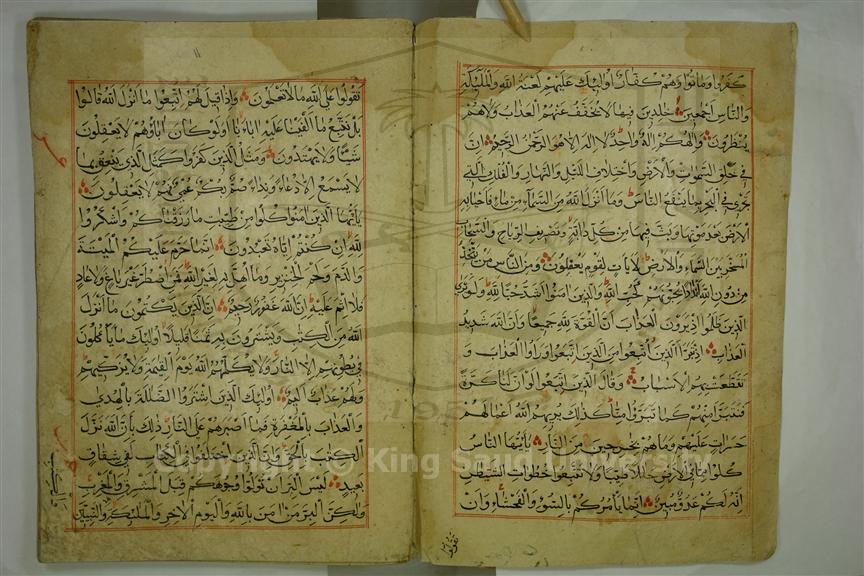 كفروا وماتوا وهم كفار اولئك عليهم لعنة الله والملئكة
والناس اجمعين خلدين فيها لا يخفف عنهم العذاب ولا هم
ينظرون والهكم اله واحد لا اله الا هو الرحمن الرحيم ان
في خلق السموات والارض واختلاف الليل والنهار والفلك التي
تجري في البحر بما ينفع الناس وما انزل الله من السماء من ماء فاحيا به
الارض بعد موتها وبث فيها من كل دابة وتصريف الرياح والسحاب
المسخر بين السماء والارض لايات لقوم يعقلون ومن الناس من يتخذ
من دون الله اندادا يحبونهم كحب الله والذين امنوا اشد حبا لله ولو يرى
الذين ظلموا اذ يرون العذاب ان القوة لله جميعا وان الله شديد
العذاب اذ تبرا الذين اتبعوا من الذين اتبعوا وراوا العذاب و
تقطعت بهم الاسباب وقال الذين اتبعوا لو ان لنا كرة
فنتبرا منهم كما تبرؤا منا كذلك يريهم الله اعمالهم
حسرات عليهم وما هم بخارجين من النار يايها الناس
كلوا مما في الارض حلالا طيبا ولا تتبعوا خطوات الشيطن
انه لكم عدو مبين انما يامركم بالسوء والفحشاء وان
تقولوا
تقولوا على الله ما لا تعلمون واذا قيل لهم اتبعوا ما انزل الله قالوا
بل نتبع ما الفينا عليه اباءنا اولو كان اباؤهم لا يعقلون
شيئا ولا يهتدون ومثل الذين كفروا كمثل الذي ينعق بما
لا يسمع الا دعاء ونداء صم بكم عمي فهم لا يعقلون
يايها الذين امنوا كلوا من طيبت ما رزقناكم واشكروا
لله ان كنتم اياه تعبدون انما حرم عليكم الميتة
والدم ولحم الخنزير وما اهل به لغير الله فمن اضطر غير باغ ولا عاد
فلا اثم عليه ان الله غفور رحيم ان الذين يكتمون ما انزل
الله من الكتب ويشترون به ثمنا قليلا اولئك ما ياكلون
في بطونهم الا النار ولا يكلمهم الله يوم القيمة ولا يزكيهم
ولهم عذاب اليم اولئك الذين اشتروا الضللة بالهدى
والعذاب بالمغفرة فما اصبرهم على النار ذلك بان الله نزل
الكتب بالحق وان الذين اختلفوا في الكتاب لفي شقاق
بعيد ليس البر ان تولوا وجوهكم قبل المشرق والمغرب
ولكن البر من امن بالله واليوم الاخر والملئكة والنبيين
Copyright © King Saud University